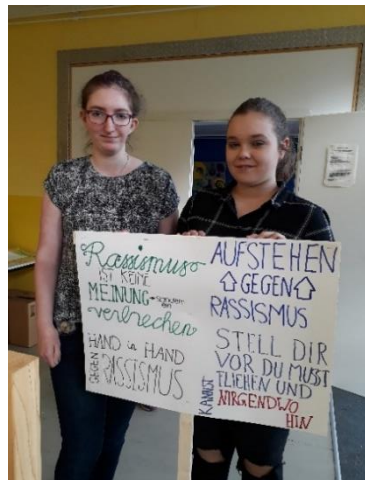 Rassismus
IST KEINE
MEINUNG - sondern
ein
verbrechen
HAND in HAND
GEGEN RASSISMUS
AUFSTEHEN
GEGEN
RASSISMUS
STELL DIR
VOR DU MUßT
FLIEHEN UND
KANNST NIRGENDWO
HIN